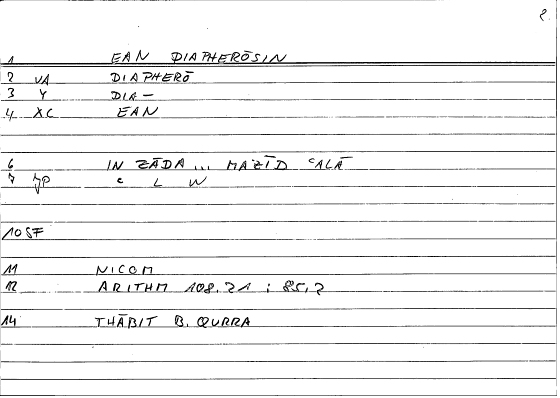 2.
1 EAN DIAPHERŌSIN
2 VA DIAPHERŌ
3 Y DIA-
4 XC EAN
6 IN ZĀDA ... MAZĪD ʿALĀ
7 JP ʿ L W
10 SF
11 NICOM
12 ARITHM 108.21 : 85,2
14 THĀBIT B. QURRA